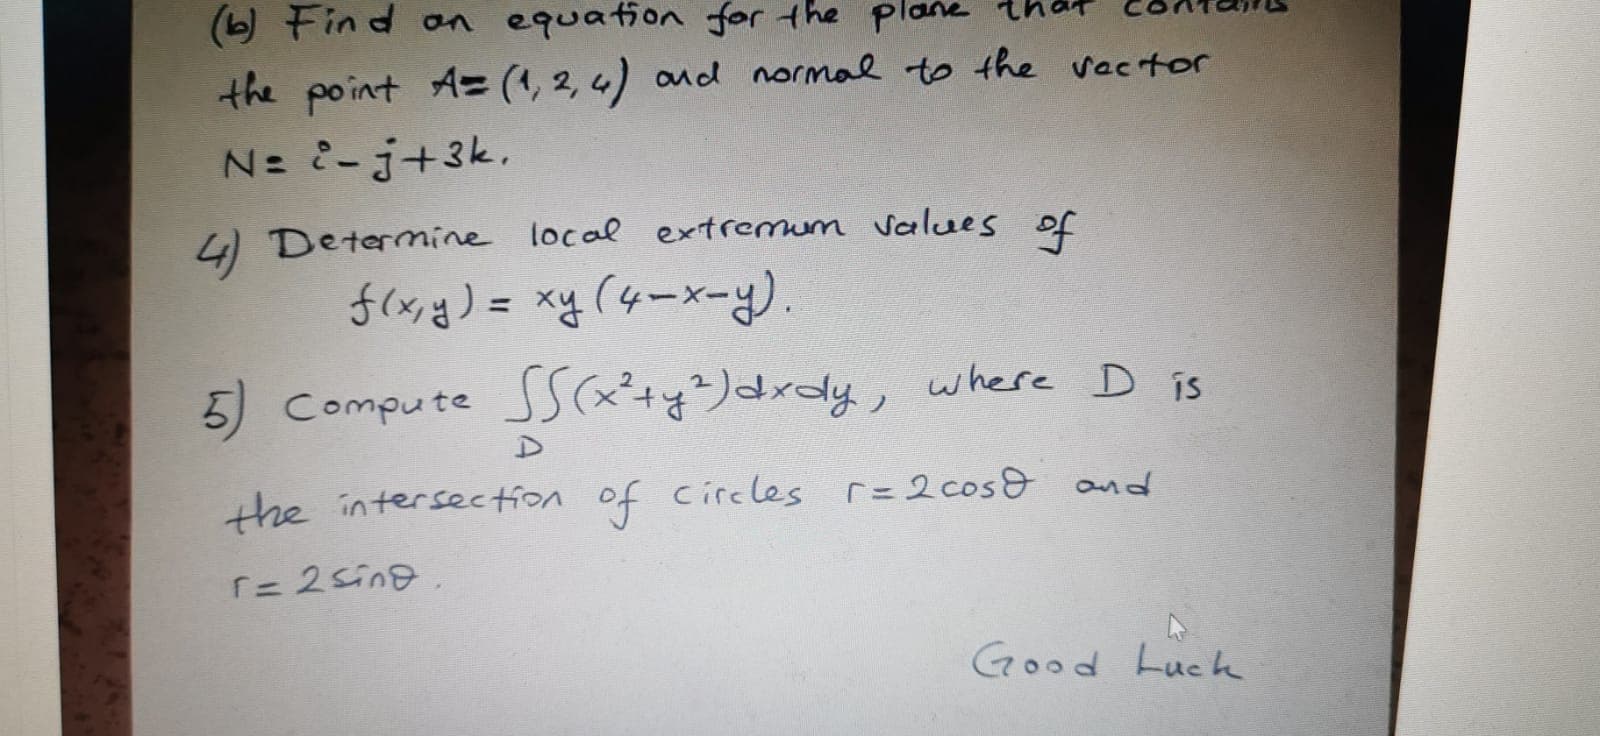 (b) Find an equation for the plane that contains
the point A = (1, 2, 4) and normal to the vector
N = i - j + 3k.
4) Determine local extremum values of
f(x,y) = xy(4-x-y).
5) Compute ∬(x²+y²)dxdy, where D is
D
the intersection of circles r = 2cosθ and
r = 2sinθ.
Good Luck